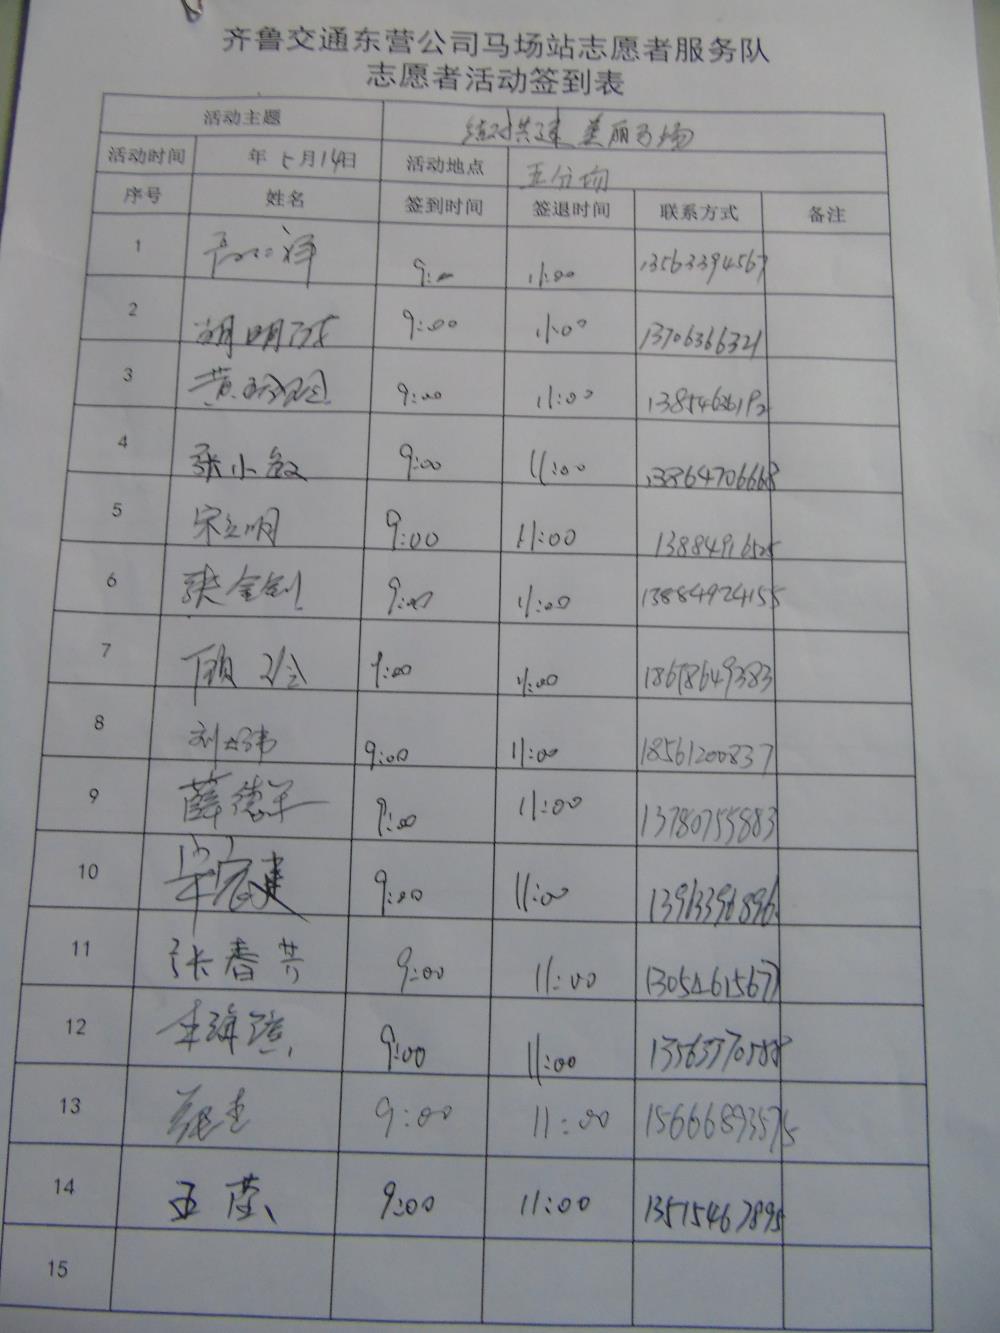 齐鲁交通东营公司马场站志愿者服务队
志愿者活动签到表
活动主题 结对共建 美丽马场
活动时间 年 5月14日 活动地点 五分场
序号 姓名 签到时间 签退时间 联系方式 备注
1 9:00 11:00 13563394567
2 胡明 9:00 11:00 13706366321
3 黄 9:00 11:00
4 张小敏 9:00 11:00 13864706668
5 宋立明 9:00 11:00
6 张金剑 9:00 11:00 13884924155
7 顾 9:00 11:00 18678649383
8 刘 9:00 11:00 18561200837
9 薛德军 9:00 11:00 13780755883
10 宏建 9:00 11:00
11 张春芳 9:00 11:00 13054615677
12 李海滨 9:00 11:00
13 9:00 11:00 15666893575
14 王莹 9:00 11:00 13515467895
15